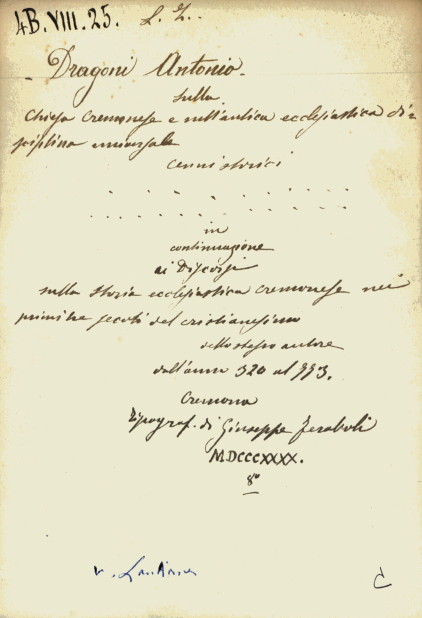 4B.VIII.25. L. Z..
Dragoni Antonio.
sulla
Chiesa Cremonese e sull'antica ecclesiastica di=
sciplina universale
cenni storici
. . . . . . . . .
. . . . . . . . . . .
in
continuazione
ai Discorsi
sulla storia ecclesiastica cremonese nei
primi tre secoli del cristianesimo
dello stesso autore
dall'anno 320 al 553.
Cremona
Tipograf. di Giuseppe Feraboli
MDCCCXXXX.
8º
v.
C